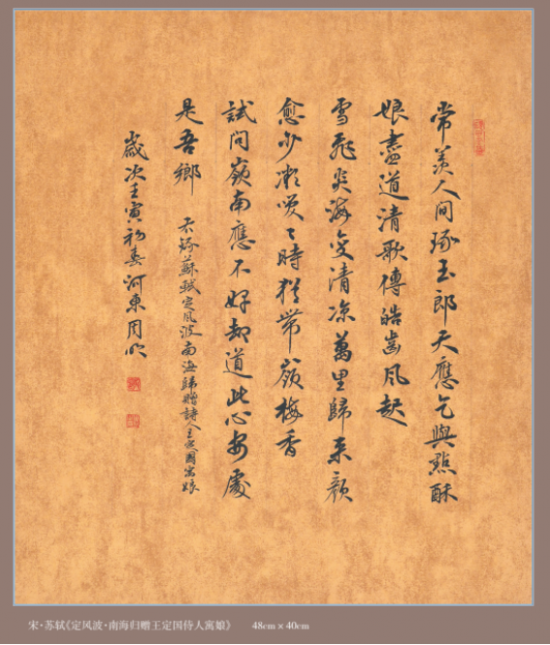 常羡人间琢玉郎天應乞與點酥
娘盡道清歌傳皓齒風起
雪飛炎海變清凉萬里歸来顔
愈少微笑〻時猶帶嶺梅香
試问嶺南應不好却道此心安處
是吾鄉 右録蘇軾定風波南海歸贈詩人王定国寓娘
歲次壬寅初春河東周
宋·苏轼《定风波·南海归赠王定国侍人寓娘》 48cm×40cm